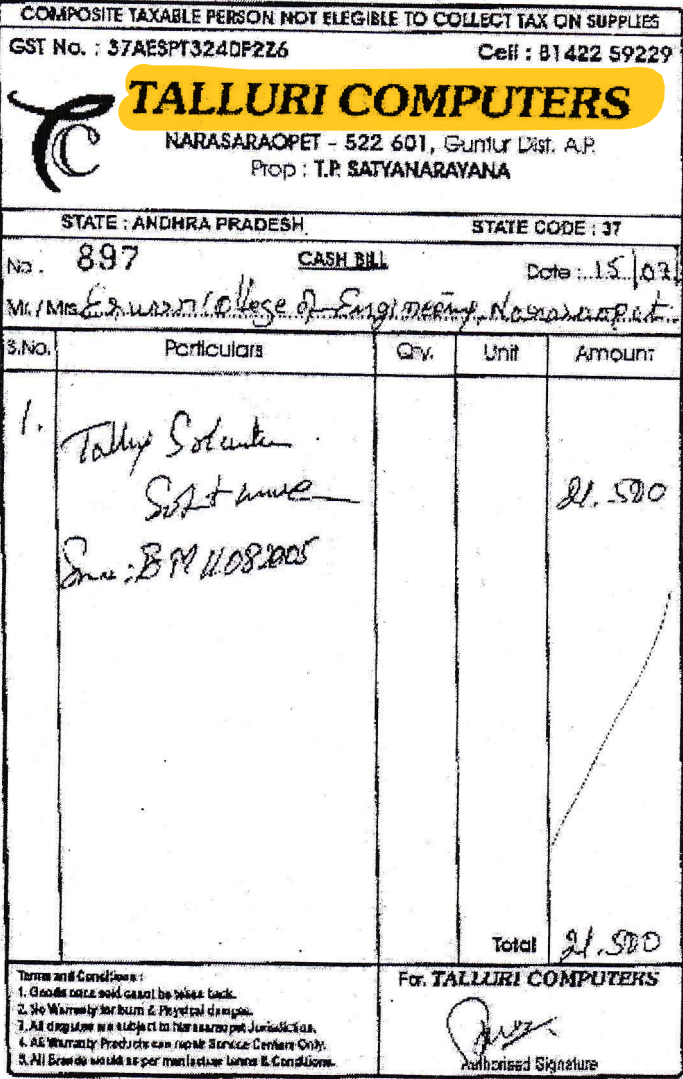 COMPOSITE TAXABLE PERSON NOT ELEGIBLE TO COLLECT TAX ON SUPPLIES
GST No. : 37AESPT3240F2Z6 Cell : 81422 59229
TALLURI COMPUTERS
NARASARAOPET - 522 601, Guntur Dist. A.P.
Prop : T.P. SATYANARAYANA
STATE : ANDHRA PRADESH STATE CODE : 37
No. 897 CASH BILL Date : 15/07/
Mr./Mrs. College of Engineering, Narasaraopet.
S.No. Particulars Qty. Unit Amount
1. Tally
Software 21.500
BM11082005
Total 21.500
Terms and Conditions :
1. Goods once sold cannot be taken back.
2. No Warranty for burn & Physical damages.
3. All disputes are subject to Narasaraopet Jurisdiction.
4. All Warranty Products can repair Service Centers Only.
5. All Brands would as per terms & Conditions.
For. TALLURI COMPUTERS
Authorised Signature